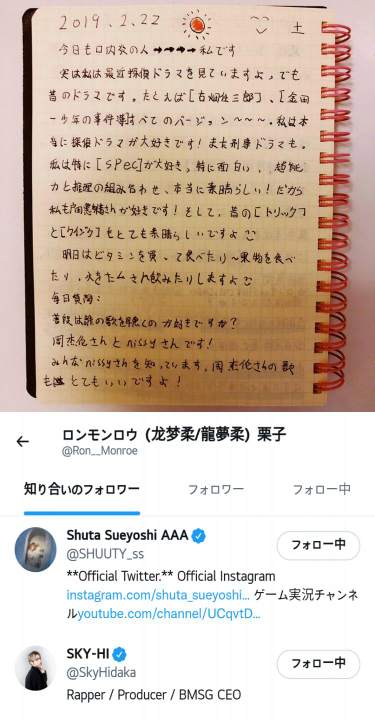 2019.2.22
土
今日も口内炎の人→→→→私です
実は私は最近探偵ドラマを見ていますよっでも
昔のドラマです。たとえば[古畑任三郎]、[金田
一少年の事件簿]すべてのバージョン〜〜〜。私は本
当に探偵ドラマが大好きです！また刑事ドラマも。
私は特に[SPEC]が大好き。特に面白い、超能
力と推理の組み合わせ、本当に素晴らしい！だから
私も戸田恵梨香さんが好きです！そして、昔の[トリック]
と[ケイゾク]もとても素晴らしいですよ
明日はビタミンを買って食べたり〜果物を食べ
たり、水をたくさん飲みたりしますよ
毎日質問：
普段は誰の歌を聴くのが好きですか？
周杰伦さんとnissyさんです！
みんなnissyさんを知っています。周杰伦さんの歌
もとてもいいですよ！
ロンモンロウ (龙梦柔/龍夢柔) 栗子
@Ron__Monroe
知り合いのフォロワー フォロワー フォロー中
Shuta Sueyoshi AAA
フォロー中
@SHUUTY_ss
**Official Twitter.** Official Instagram
instagram.com/shuta_sueyoshi... ゲーム実況チャンネ
ルyoutube.com/channel/UCqvtD...
SKY-HI
フォロー中
@SkyHidaka
Rapper / Producer / BMSG CEO